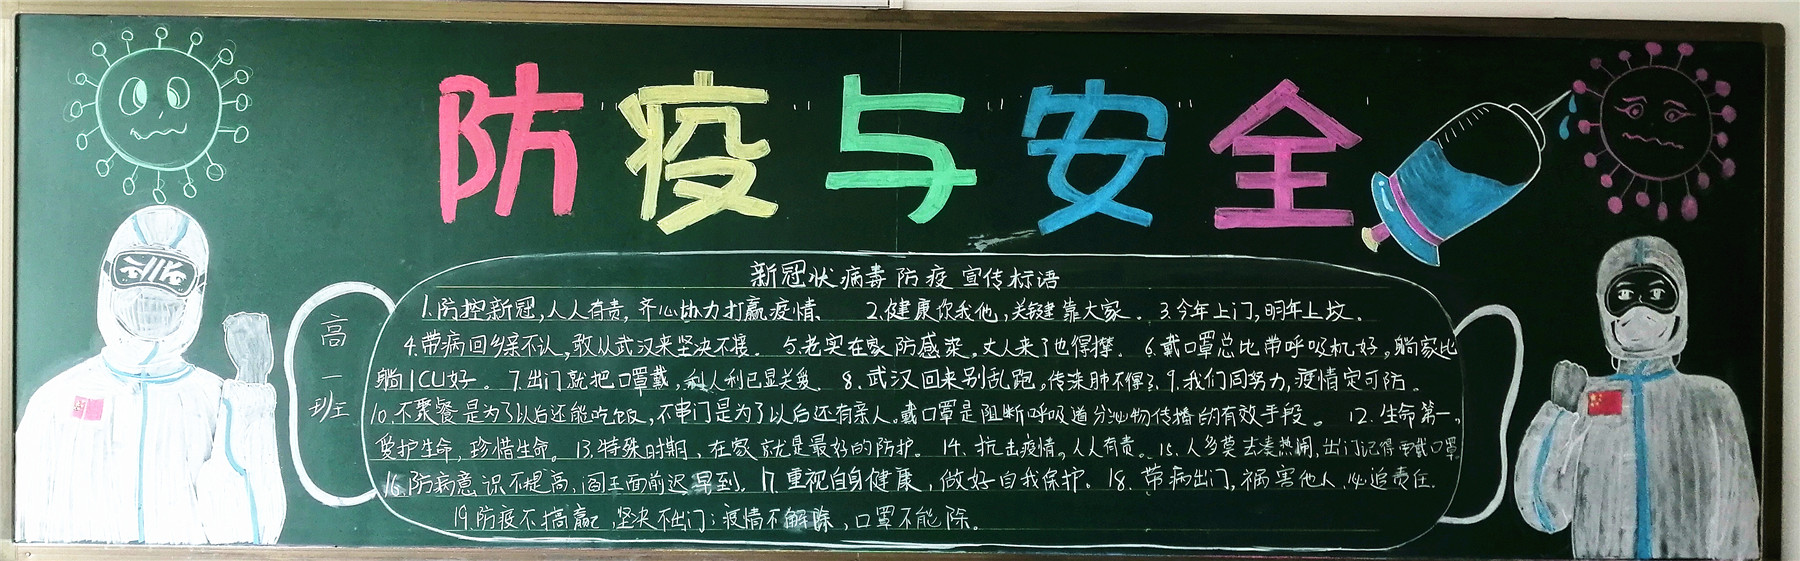 防疫与安全
高一班
新冠状病毒防疫宣传标语
1.防控新冠,人人有责,齐心协力打赢疫情、 2.健康你我他,关键靠大家。 3.今年上门,明年上坟。
4.带病回乡亲不认,敢从武汉来坚决不接。 5.老实在家防感染,丈人来了也得撵。 6.戴口罩总比带呼吸机好。躺家比
躺ICU好。 7.出门就把口罩戴,利人利己显关爱 8.武汉回来别乱跑。传染肺不得了、9.我们同努力,疫情定可防。
10.不聚餐是为了以后还能吃饭,不串门是为了以后还有亲人。戴口罩是阻断呼吸道分泌物传播的有效手段。 12.生命第一,
爱护生命,珍惜生命。 13.特殊时期,在家就是最好的防护。 14.抗击疫情。人人有责。15.人多莫去凑热闹,出门记得要戴口罩
16.防病意识不提高,阎王面前迟早到。17.重视自身健康,做好自我保护。18.带病出门,祸害他人、必追责任.
19.防疫不搞赢,坚决不出门;疫情不解除,口罩不能除。